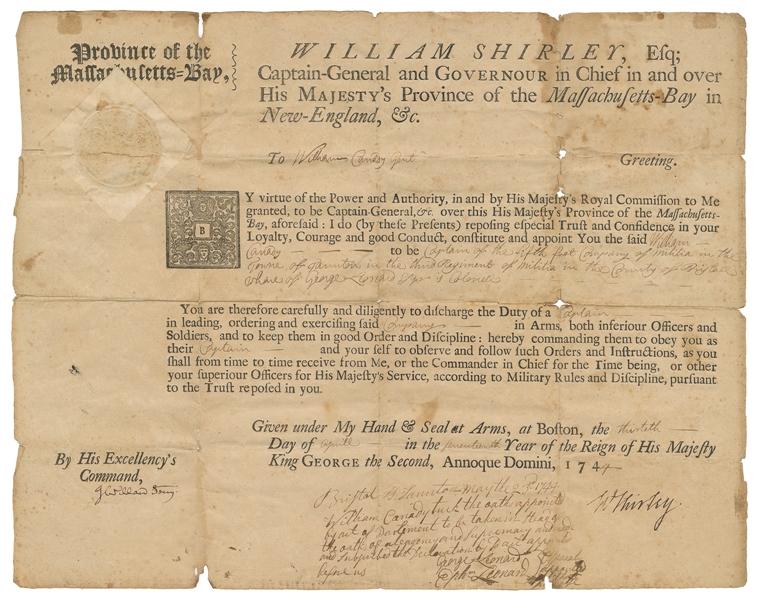 Province of the
Massachusetts=Bay,
WILLIAM SHIRLEY, Esq;
Captain-General and GOVERNOUR in Chief in and over
His MAJESTY's Province of the Maſſachuſetts-Bay in
New-England, &c.
To William Canedy Gent Greeting.
BY virtue of the Power and Authority, in and by His Majeſty's Royal Commiſſion to Me
granted, to be Captain-General, &c. over this His Majeſty's Province of the Maſſachuſetts-
Bay, aforeſaid: I do (by theſe Preſents) repoſing eſpecial Truſt and Confidence in your
Loyalty, Courage and good Conduct, conſtitute and appoint You the ſaid William
Canedy to be Captain of the fifth foot Company of Militia in the
Towne of Taunton in the third Regiment of Militia in the County of Bristol
whare of George Leonard Esqr is Colonel
You are therefore carefully and diligently to diſcharge the Duty of a Captain
in leading, ordering and exerciſing ſaid Company in Arms, both inferiour Officers and
Soldiers, and to keep them in good Order and Diſcipline: hereby commanding them to obey you as
their Captain and your ſelf to obſerve and follow ſuch Orders and Inſtructions, as you
ſhall from time to time receive from Me, or the Commander in Chief for the Time being, or other
your ſuperiour Officers for His Majeſty's Service, according to Military Rules and Diſcipline, purſuant
to the Truſt repoſed in you.
Given under My Hand & Seal at Arms, at Boſton, the thirtieth
Day of Aprill in the seventeenth Year of the Reign of His Majeſty
King GEORGE the Second, Annoque Domini, 1744
By His Excellency's
Command,
J Willard Secry.
W Shirley.
Bristol ss Taunton May the 1744
William Canady tuck the oath appointed
by act of Parlement to be taken in
the oath of and supremacy and
and subscribed the declaration by
before us George Leonard
Ephm Leonard